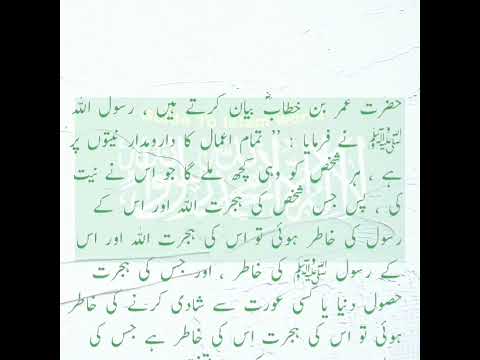 حضرت عمر بن خطابؓ بیان کرتے ہیں ، رسول اللہ
ﷺ نے فرمایا : ’’ تمام اعمال کا دارومدار نیتوں پر
ہے ، ہر شخص کو وہی کچھ ملے گا جو اس نے نیت
کی ، پس جس شخص کی ہجرت اللہ اور اس کے
رسول کی خاطر ہوئی تو اس کی ہجرت اللہ اور اس
کے رسول ﷺ کی خاطر ، اور جس کی ہجرت
حصول دنیا یا کسی عورت سے شادی کرنے کی خاطر
ہوئی تو اس کی ہجرت اس کی خاطر ہے جس کی